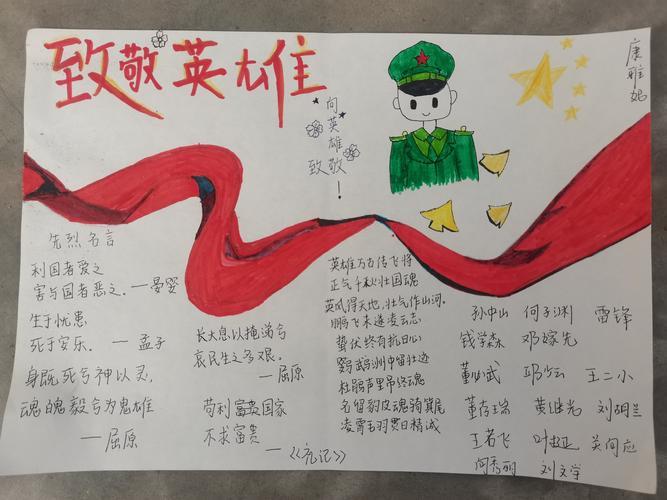 致敬英雄
向英雄
致敬!
康雅妮
先烈名言
利国者爱之
害与国者恶之.——晏婴
生于忧患
死于安乐.——孟子
身既死兮神以灵,
魂魄毅兮为鬼雄
——屈原
长太息以掩涕兮
哀民生之多艰.
——屈原
苟利富贵国家
不求富贵
——《礼记》
英雄万古传飞将
正气千秋壮国魂
英风得天地,壮气作山河.
鹏飞未遂凌云志
蛰伏终有抗日心
鹦鹉洲中留壮迹
杜鹃声里吊终魂
名留豹皮魂骑箕尾
凌霄毛羽贯日精诚
孙中山 何子渊 雷锋
钱学森 邓嫁先
董必武 邱少云 王二小
董存瑞 黄继光 刘胡兰
王若飞 叶挺 关向应
闫秀丽 刘文学